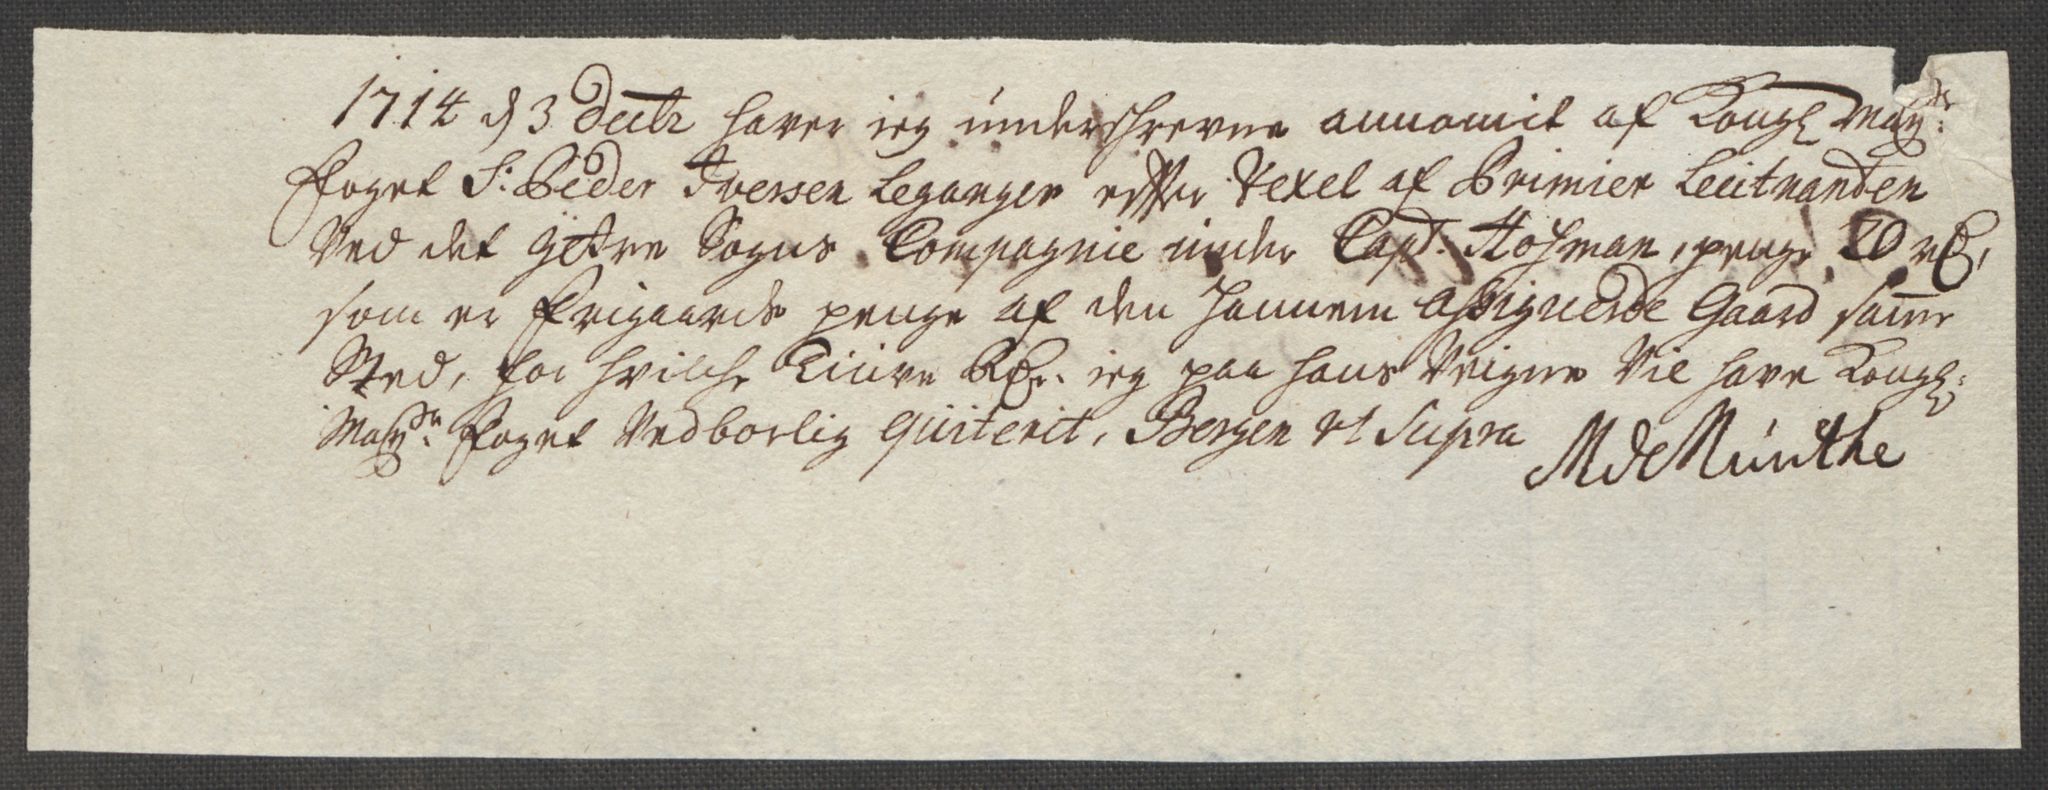 1714 d 3 Decbr haver ieg underschrevne annamit af Kongl Mayts:
Foget Sr: Peder Iversen Leganger efter Vexel af Primier Leutnanden
Ved det Yttre Sogns Compagnie under Capt. Hofman, penge 20 rd,
som er Frigaards penge af den hannem assignerde Gaard samme
Sted, for hvilche Tiuve Rdr. ieg paa hans Veigne Vil have Kongl:
Maytz: Foget Vedborlig quiterit, Bergen ut Supra
M de Münthe